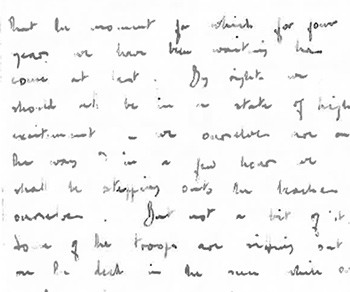 that the moment for which for four
years we have been waiting has
come at last. By rights we
should all be in a state of high
excitement - we ourselves are on
the way & in a few hours we
shall be stepping onto the beaches
ourselves. But not a bit of it.
Some of the troops are sitting out
on the deck in the sun while